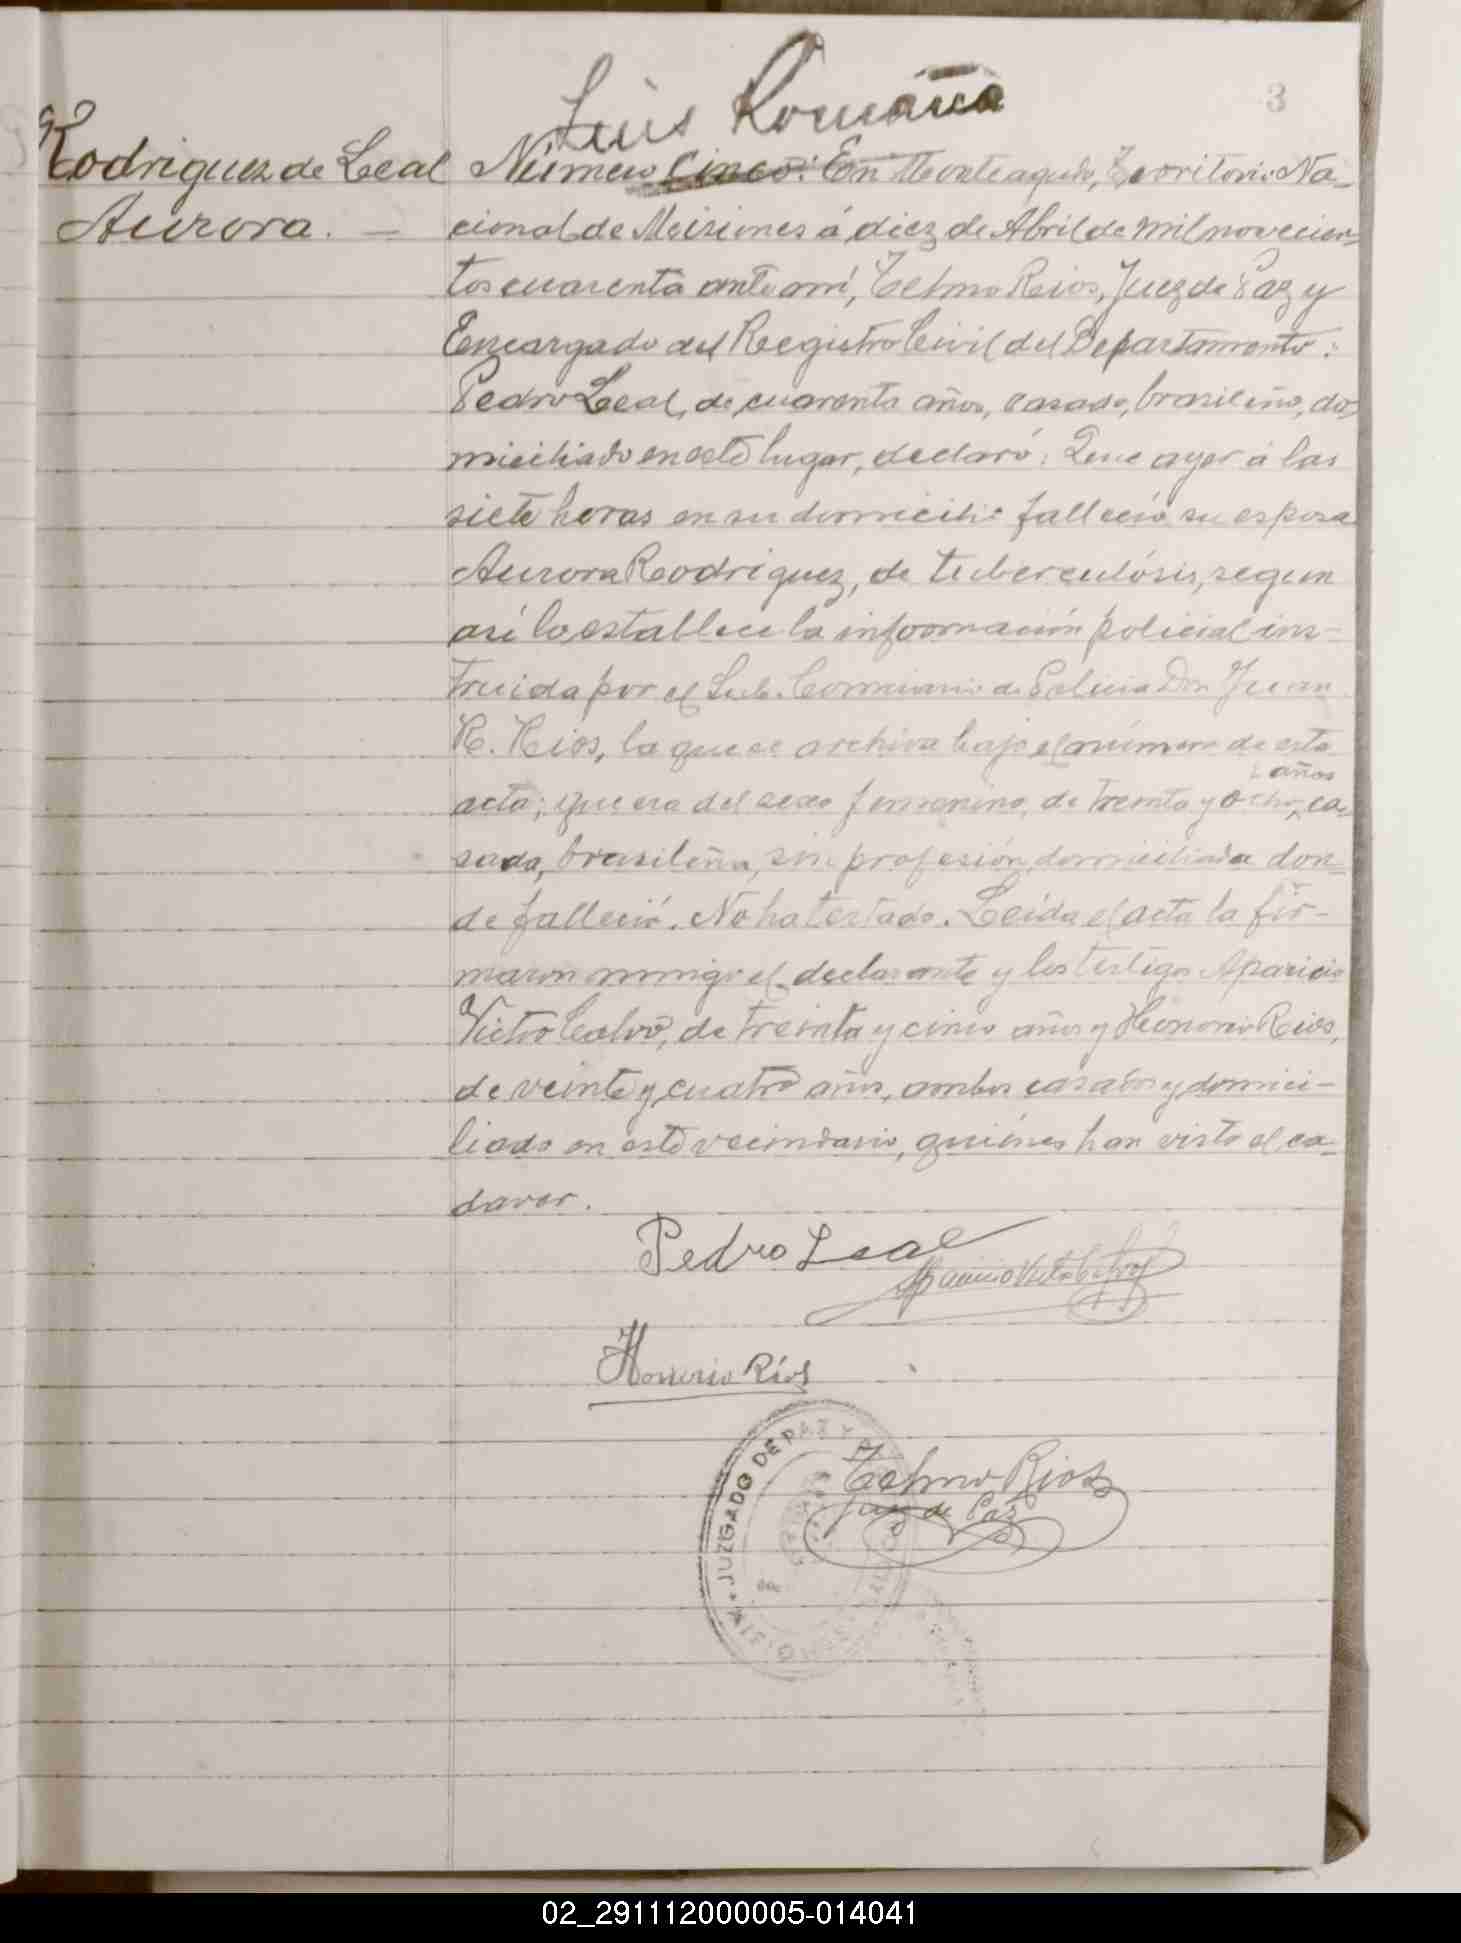 Luis Romaña
3
Rodriguez de Leal
Aurora. —
Número Cinco: En Monteagudo, Territorio Na-
cional de Misiones á diez de Abril de mil novecien-
tos cuarenta ante mí, Telmo Rios, Juez de Paz y
Encargado del Registro Civil del Departamento:
Pedro Leal, de cuarenta años, casado, brasileño, do-
miciliado en este lugar, declaró: Que ayer á las
siete horas en su domicilio falleció su esposa
Aurora Rodriguez, de tuberculósis, segun
así lo establece la información policial ins-
truida por el Sub. Comisario de Policia Don Juan
R. Rios, la que se archiva bajo el número de esta
años
acta; que era del sexo femenino, de treinta y ocho, ca-
sada, brasileña, sin profesión, domiciliada don-
de falleció. No ha testado. Leída el acta la fir-
maron conmigo el declarante y los testigos Aparicio
Victor Calvo, de treinta y cinco años y Honorio Rios,
de veinte y cuatro años, ambos casados y domici-
liado en este vecindario, quiénes han visto el ca-
daver.
Pedro Leal
Honorio Ríos
JUZGADO DE PAZ Y
Telmo Rios
Juez de Paz
02_291112000005-014041